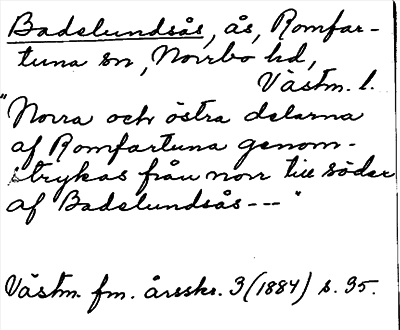 Badelundsås, ås, Romfar-
tuna sn, Norrbo hd,
Västm. l.
"Norra och östra delarna
af Romfartuna genom-
strykas från norr till söder
af Badelundsås---"
Västm. fm. årsskr. 3 (1884) s. 95.